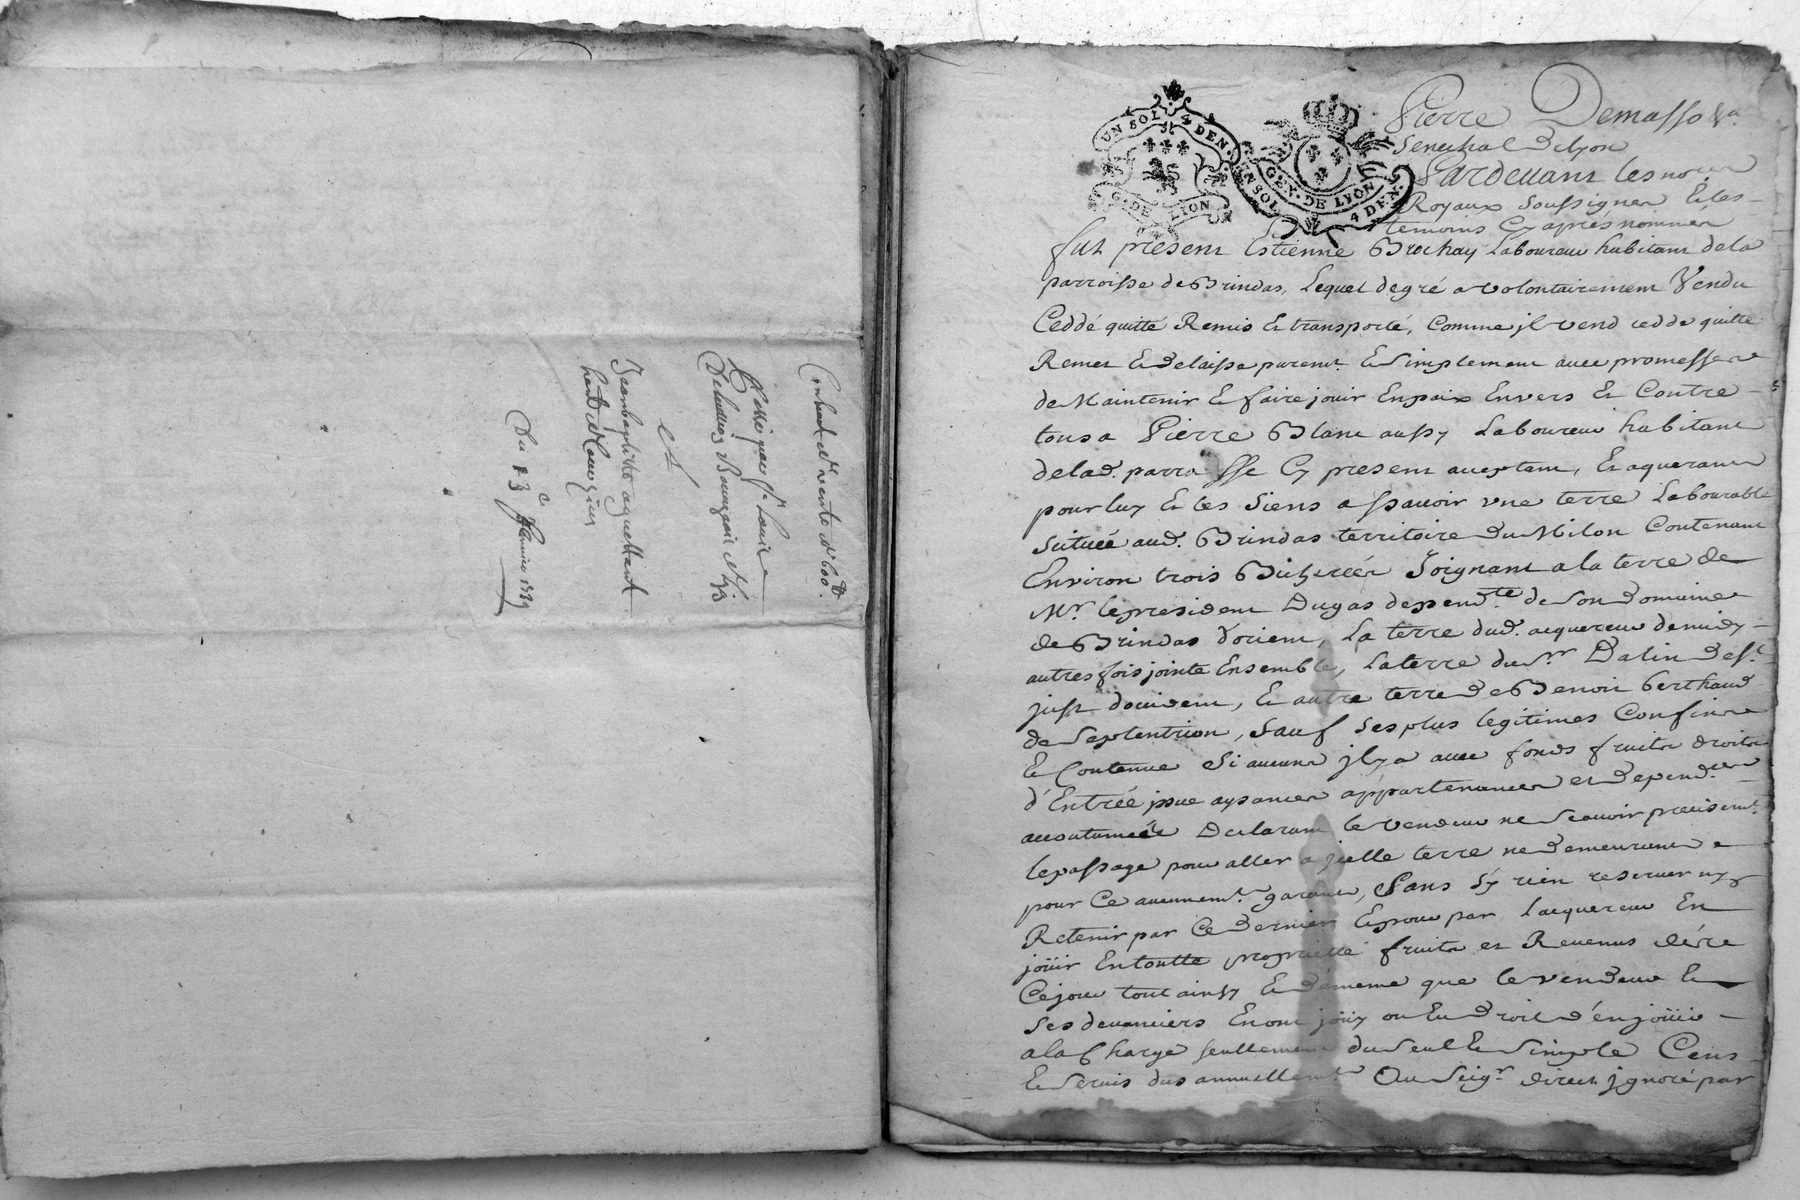 Contract de vente de 600#.
passé par Sr Louis
Delu Bourgeois de
et
Jeanbaptiste aguettant
Du 13e Janvier 1789
UN SOL. 4 DEN.
G. DE LION
GEN. DE LYON
UN SOL. 4 DEN.
Pierre Demasso
Senechal de lyon
Pardevant les nores
Royaux soussignes & les
temoins Cy après nommés
fut present Estienne Brochay Laboureur habitant de la
parroisse de Brindas, Lequel de gré a volontairement Vendu
Ceddé quitté Remis & transporté, Comme jl vend cedde quitte
Remet & delaisse puremt. & simplement avec promesses
de Maintenir & faire jouir En paix Envers & Contre
tous a Pierre Blanc aussy Laboureur habitant
de lad. parroisse Cy present acceptant, & aquerant
pour luy & les siens a sçavoir vne terre Labourable
scituée aud. Brindas territoire du Milon Contenant
Environ trois Bicherées Joignant a la terre de
Mr. le president Dugas dependte de son domaine
de Brindas d'orient, La terre dud. acquereur de midy
autres fois jointe Ensemble, La terre du Sr. Dalin de St.
just doccident, & autre terre de Benoit berthaud
de Septentrion, sauf ses plus legitimes Confins
& Contenue si aucuns jl y a avec fonds fruits droits
d'Entrée jssue aysances appartenances et dependces
accoutumées Declarant le vendeur ne sçavoir precisemt.
le passage pour aller a jcelle terre ne demeurant
pour Ce aucunemt. garant, Sans s'y rien reserver ny
Retenir par Ce dernier & pour par Lacquereur En
joüir En toutte proprieté fruits et Revenus dez ce
Ce jour tout ainsy & de meme que le vendeur &
ses devanciers En ont joüy ou Eu droit d'en joüir
a la Charge seullement du seul & simple Cens
& servis dus annuellemt. Au seigr. direct jgnoré par